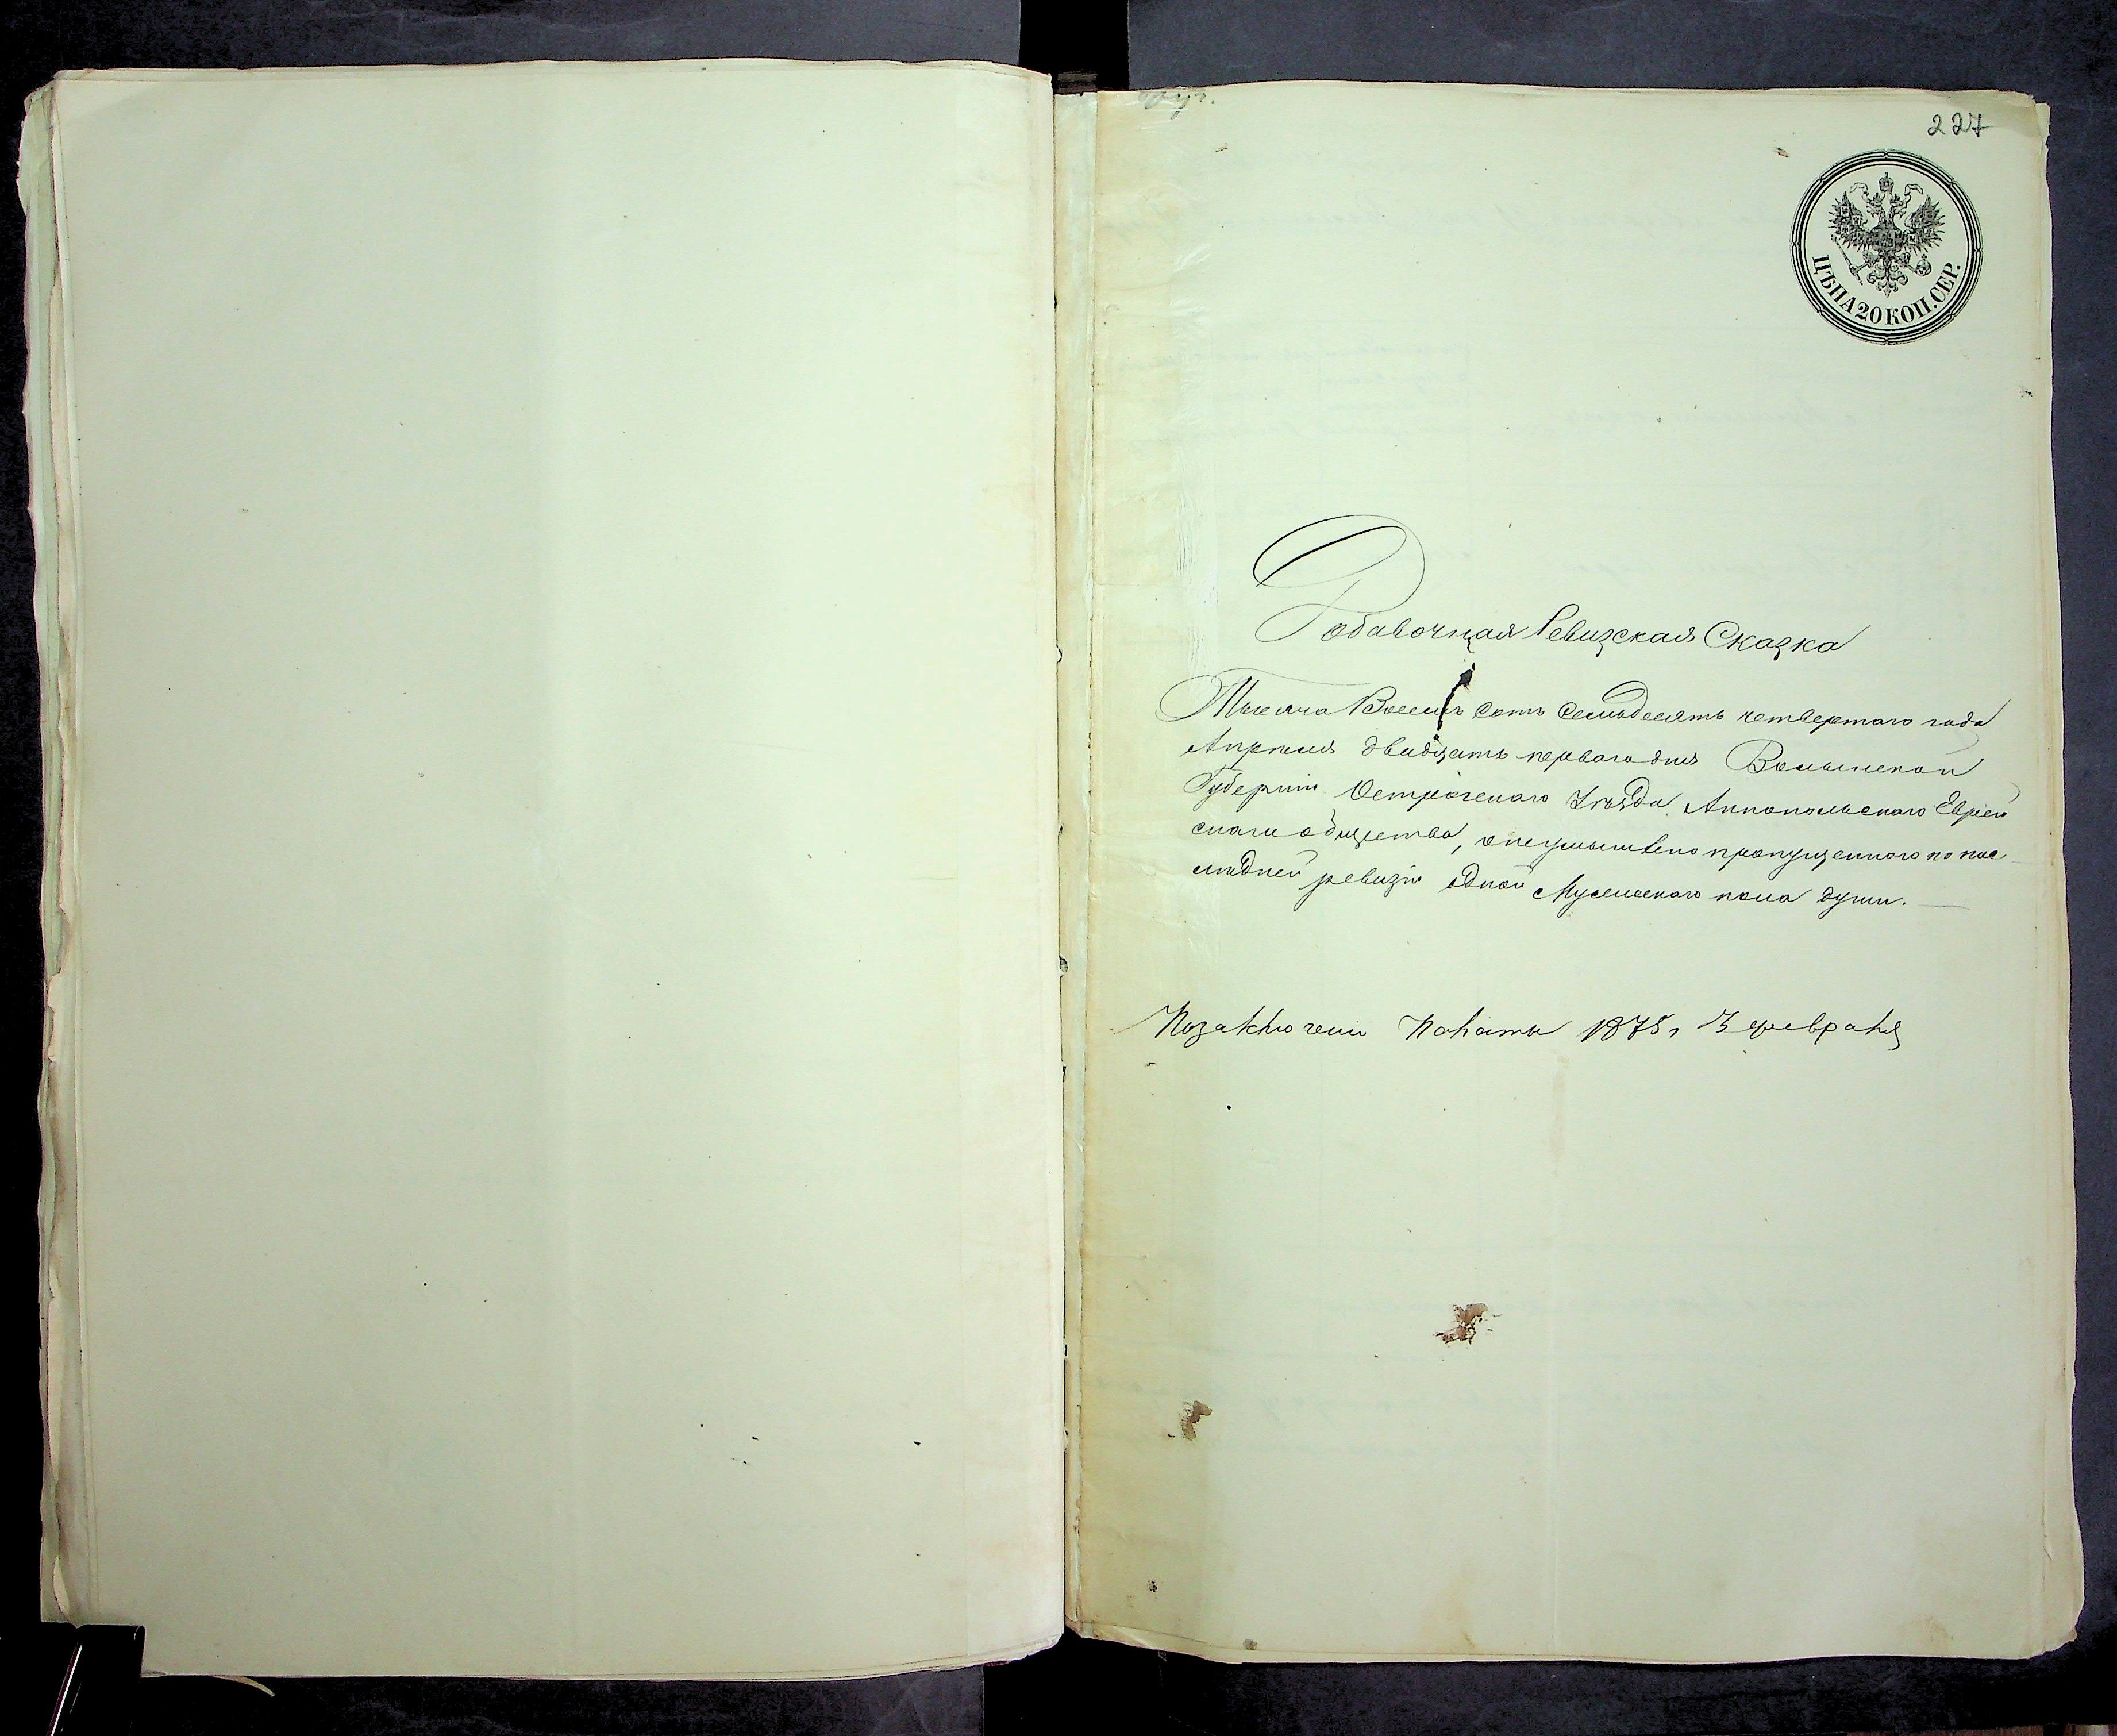 227
ЦѢНА 20 КОП. СЕР.
Добавочная Ревизская Сказка
Тысяча Восемь сотъ Семьдесятъ четвертаго года
Апрѣля двадцать перваго дня Волынской
Губерніи Острожскаго Уѣзда Аннопольскаго Еврей
скаго общества, о неумышлено пропущенного по пос
лѣдней ревизіи одной Мужескаго пола души.
По заключенію Палаты 1875 г 3 февраля